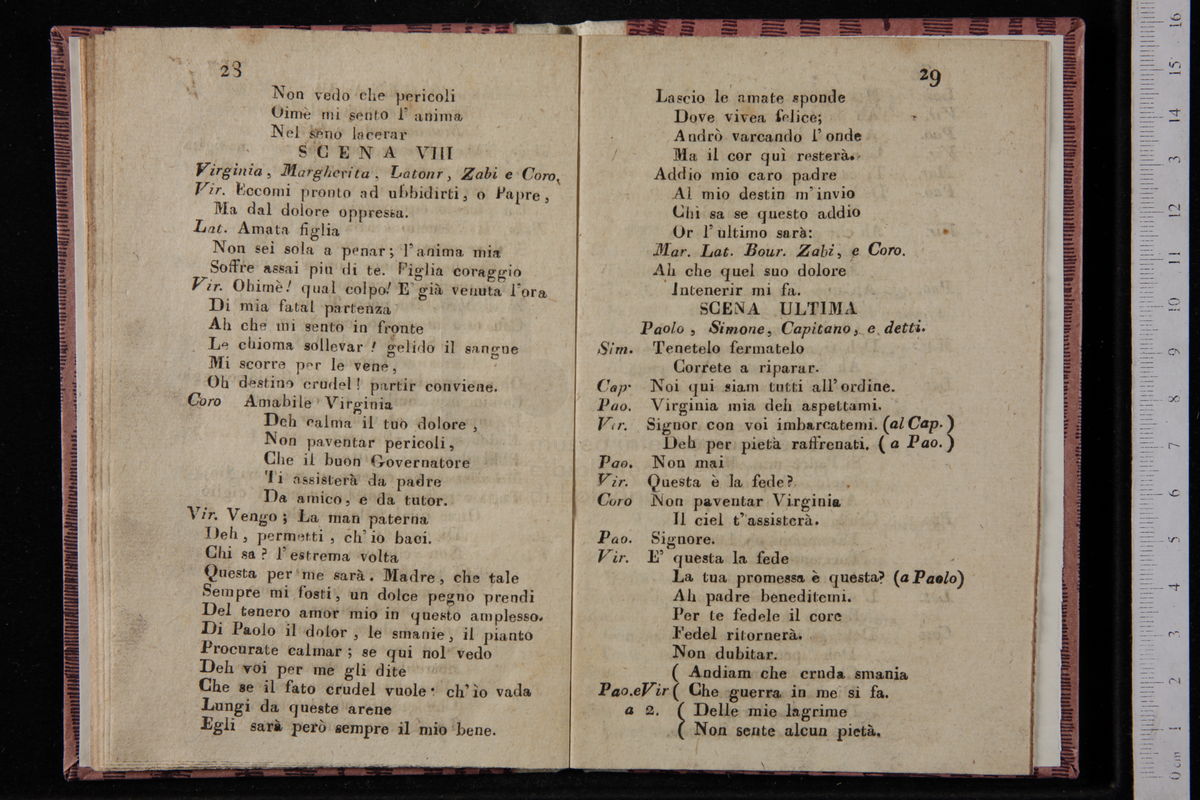 28
Non vedo che pericoli
Oimè mi sento l' anima
Nel seno lacerar
SCENA VIII
Virginia, Margherita, Latour, Zabi e Coro,
Vir. Eccomi pronto ad ubbidirti, o Papre,
Ma dal dolore oppressa.
Lat. Amata figlia
Non sei sola a penar; l'anima mia
Soffre assai piu di te. Figlia coraggio
Vir. Ohimè! qual colpo! E' già venuta l'ora
Di mia fatal partenza
Ah che mi sento in fronte
Le chioma sollevar! gelido il sangue
Mi scorre per le vene,
Oh destino crudel! partir conviene.
Coro Amabile Virginia
Deh calma il tuo dolore,
Non paventar pericoli,
Che il buon Governatore
Ti assisterà da padre
Da amico, e da tutor.
Vir. Vengo; La man paterna
Deh, permetti, ch' io baci.
Chi sa? l'estrema volta
Questa per me sarà. Madre, che tale
Sempre mi fosti, un dolce pegno prendi
Del tenero amor mio in questo amplesso.
Di Paolo il dolor, le smanie, il pianto
Procurate calmar; se qui nol vedo
Deh voi per me gli dite
Che se il fato crudel vuole ch' io vada
Lungi da queste arene
Egli sarà però sempre il mio bene.
29
Lascio le amate sponde
Dove vivea felice;
Andrò varcando l' onde
Ma il cor qui resterà.
Addio mio caro padre
Al mio destin m' invio
Chi sa se questo addio
Or l' ultimo sarà:
Mar. Lat. Bour. Zabi, e Coro.
Ah che quel suo dolore
Intenerir mi fa.
SCENA ULTIMA
Paolo, Simone, Capitano, e detti.
Sim. Tenetelo fermatelo
Correte a riparar.
Cap. Noi qui siam tutti all' ordine.
Pao. Virginia mia deh aspettami.
Vir. Signor con voi imbarcatemi. (al Cap.)
Deh per pietà raffrenati. (a Pao.)
Pao. Non mai
Vir. Questa è la fede?
Coro Non paventar Virginia
Il ciel t' assisterà.
Pao. Signore.
Vir. E' questa la fede
La tua promessa è questa? (a Paolo)
Ah padre beneditemi.
Per te fedele il core
Fedel ritornerà.
Non dubitar.
( Andiam che crnda smania
Pao.eVir ( Che guerra in me si fa.
a 2. ( Delle mie lagrime
( Non sente alcun pietà.
0 cm 1 2 3 4 5 6 7 8 9 10 11 12 13 14 15 16